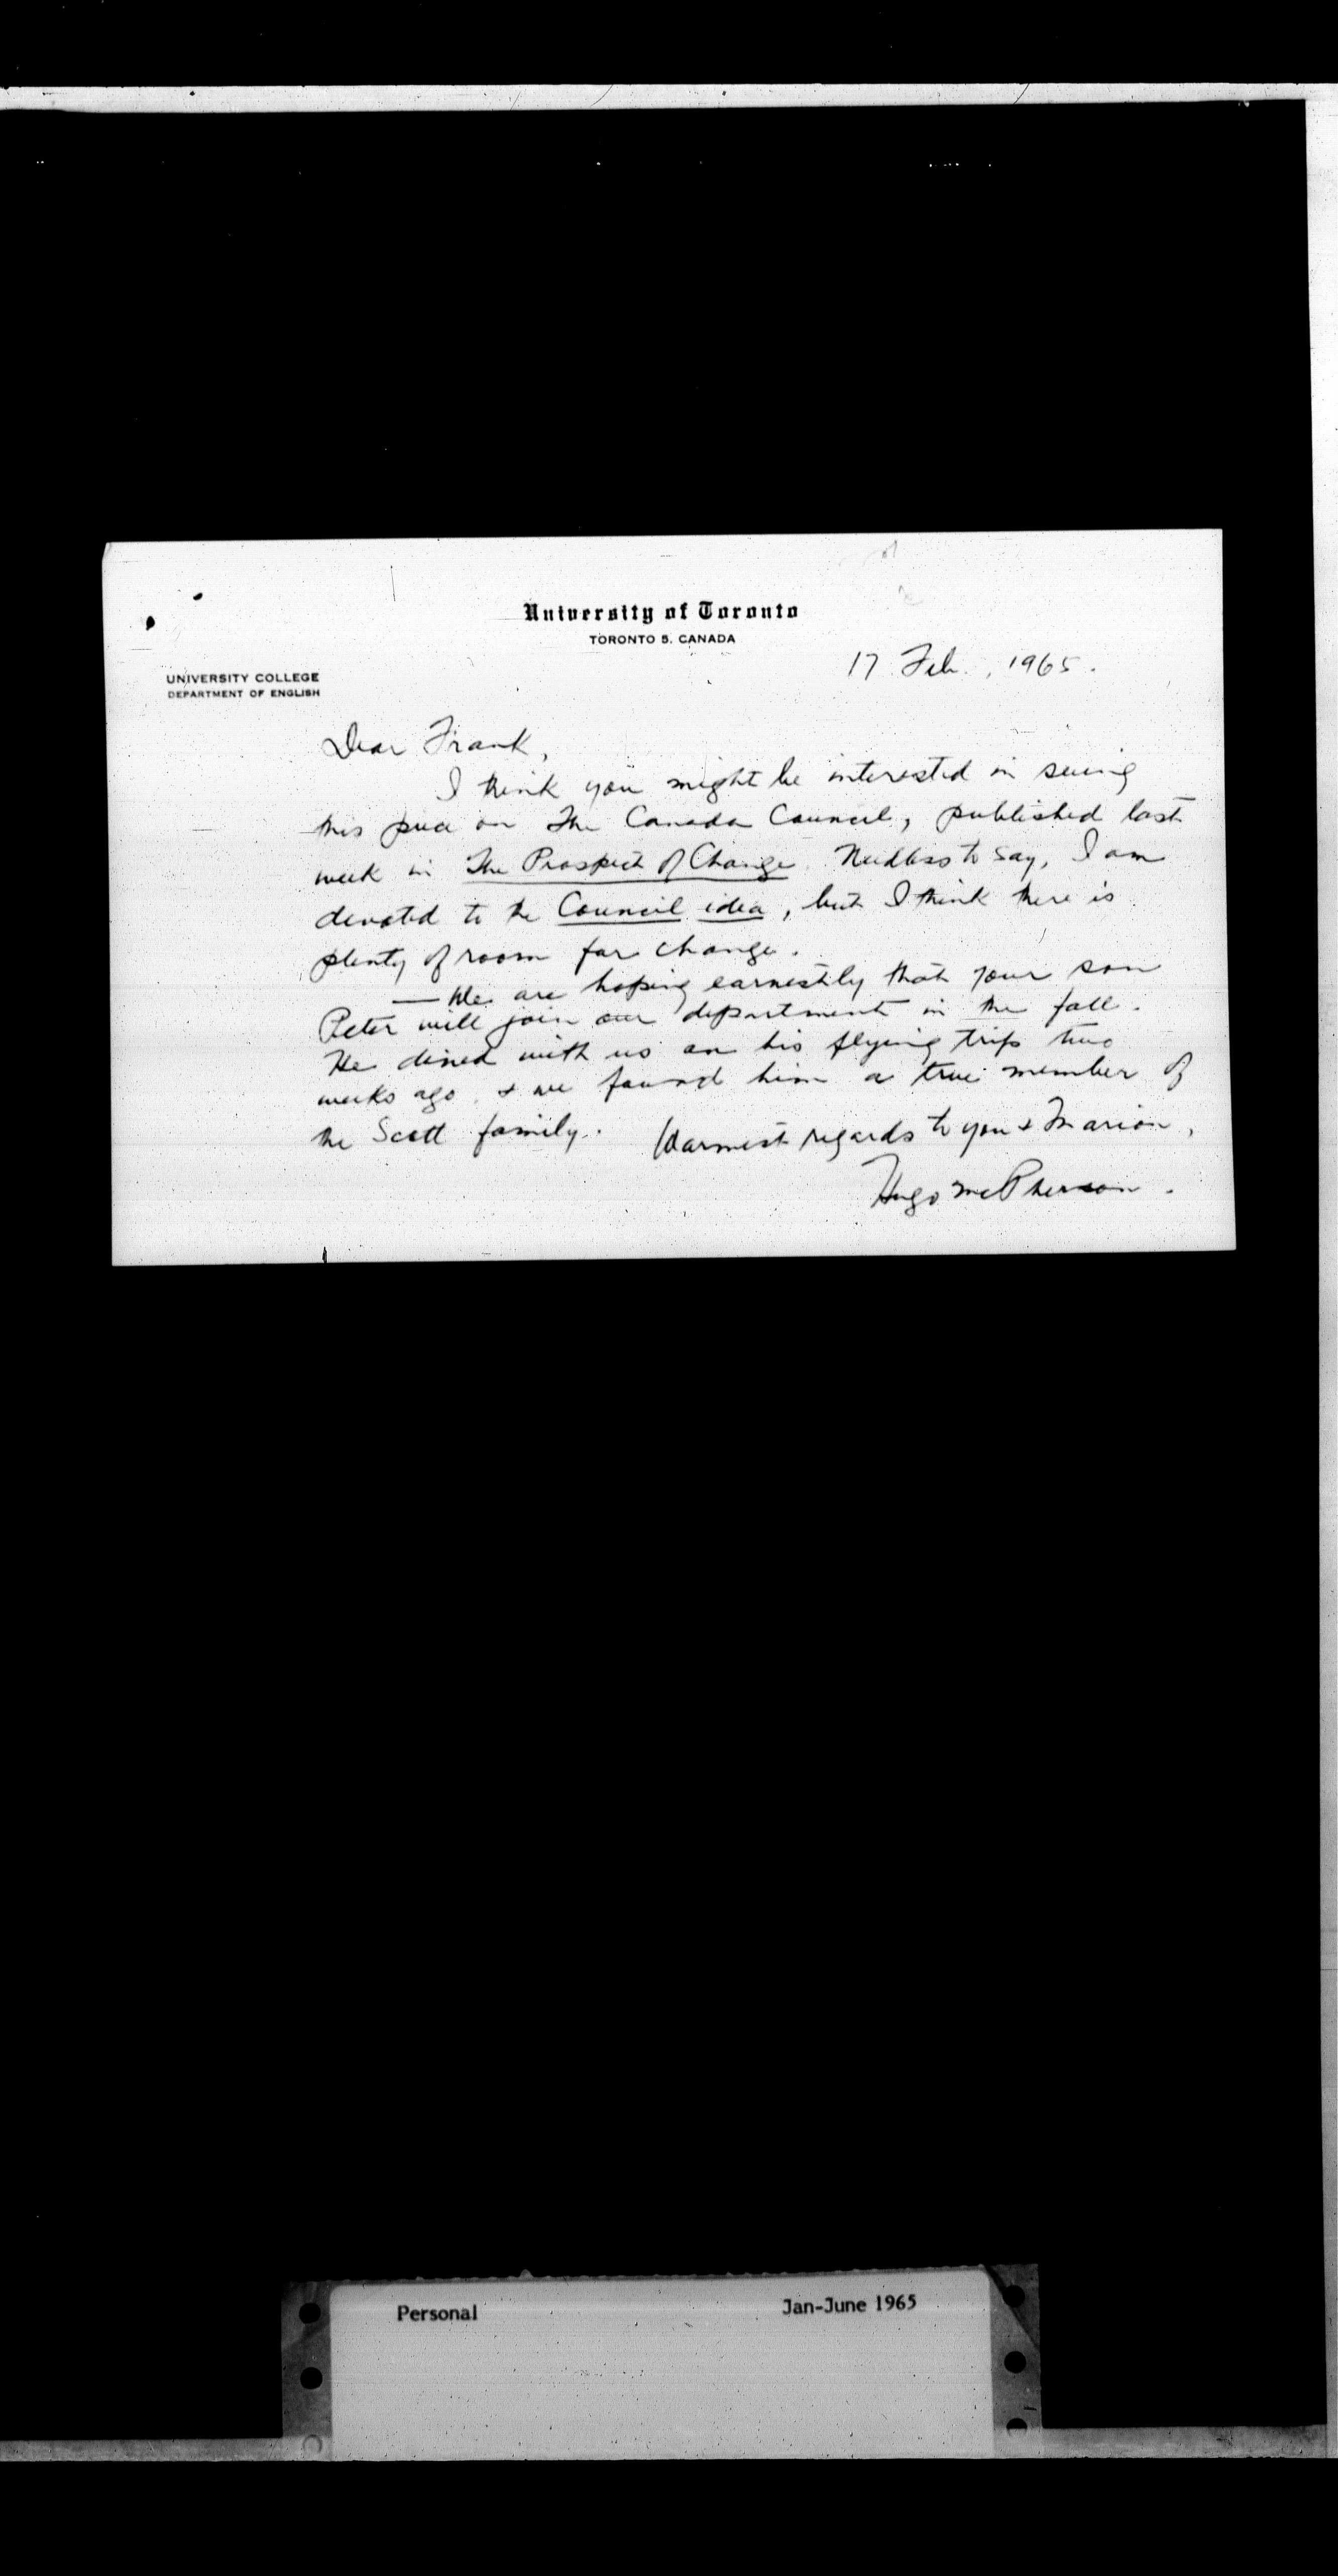 University of Toronto
TORONTO 5, CANADA
UNIVERSITY COLLEGE
DEPARTMENT OF ENGLISH
17 Feb., 1965.
Dear Frank,
I think you might be interested in seeing
this piece on The Canada Council, published last
week in The Prospect of Change. Needless to say, I am
devoted to the Council idea, but I think there is
plenty of room for change.
— We are hoping earnestly that your son
Peter will join our department in the fall.
He dined with us on his flying trip two
weeks ago, & we found him a true member of
the Scott family. Warmest regards to you & Marion,
Hugo McPherson.
Personal Jan-June 1965